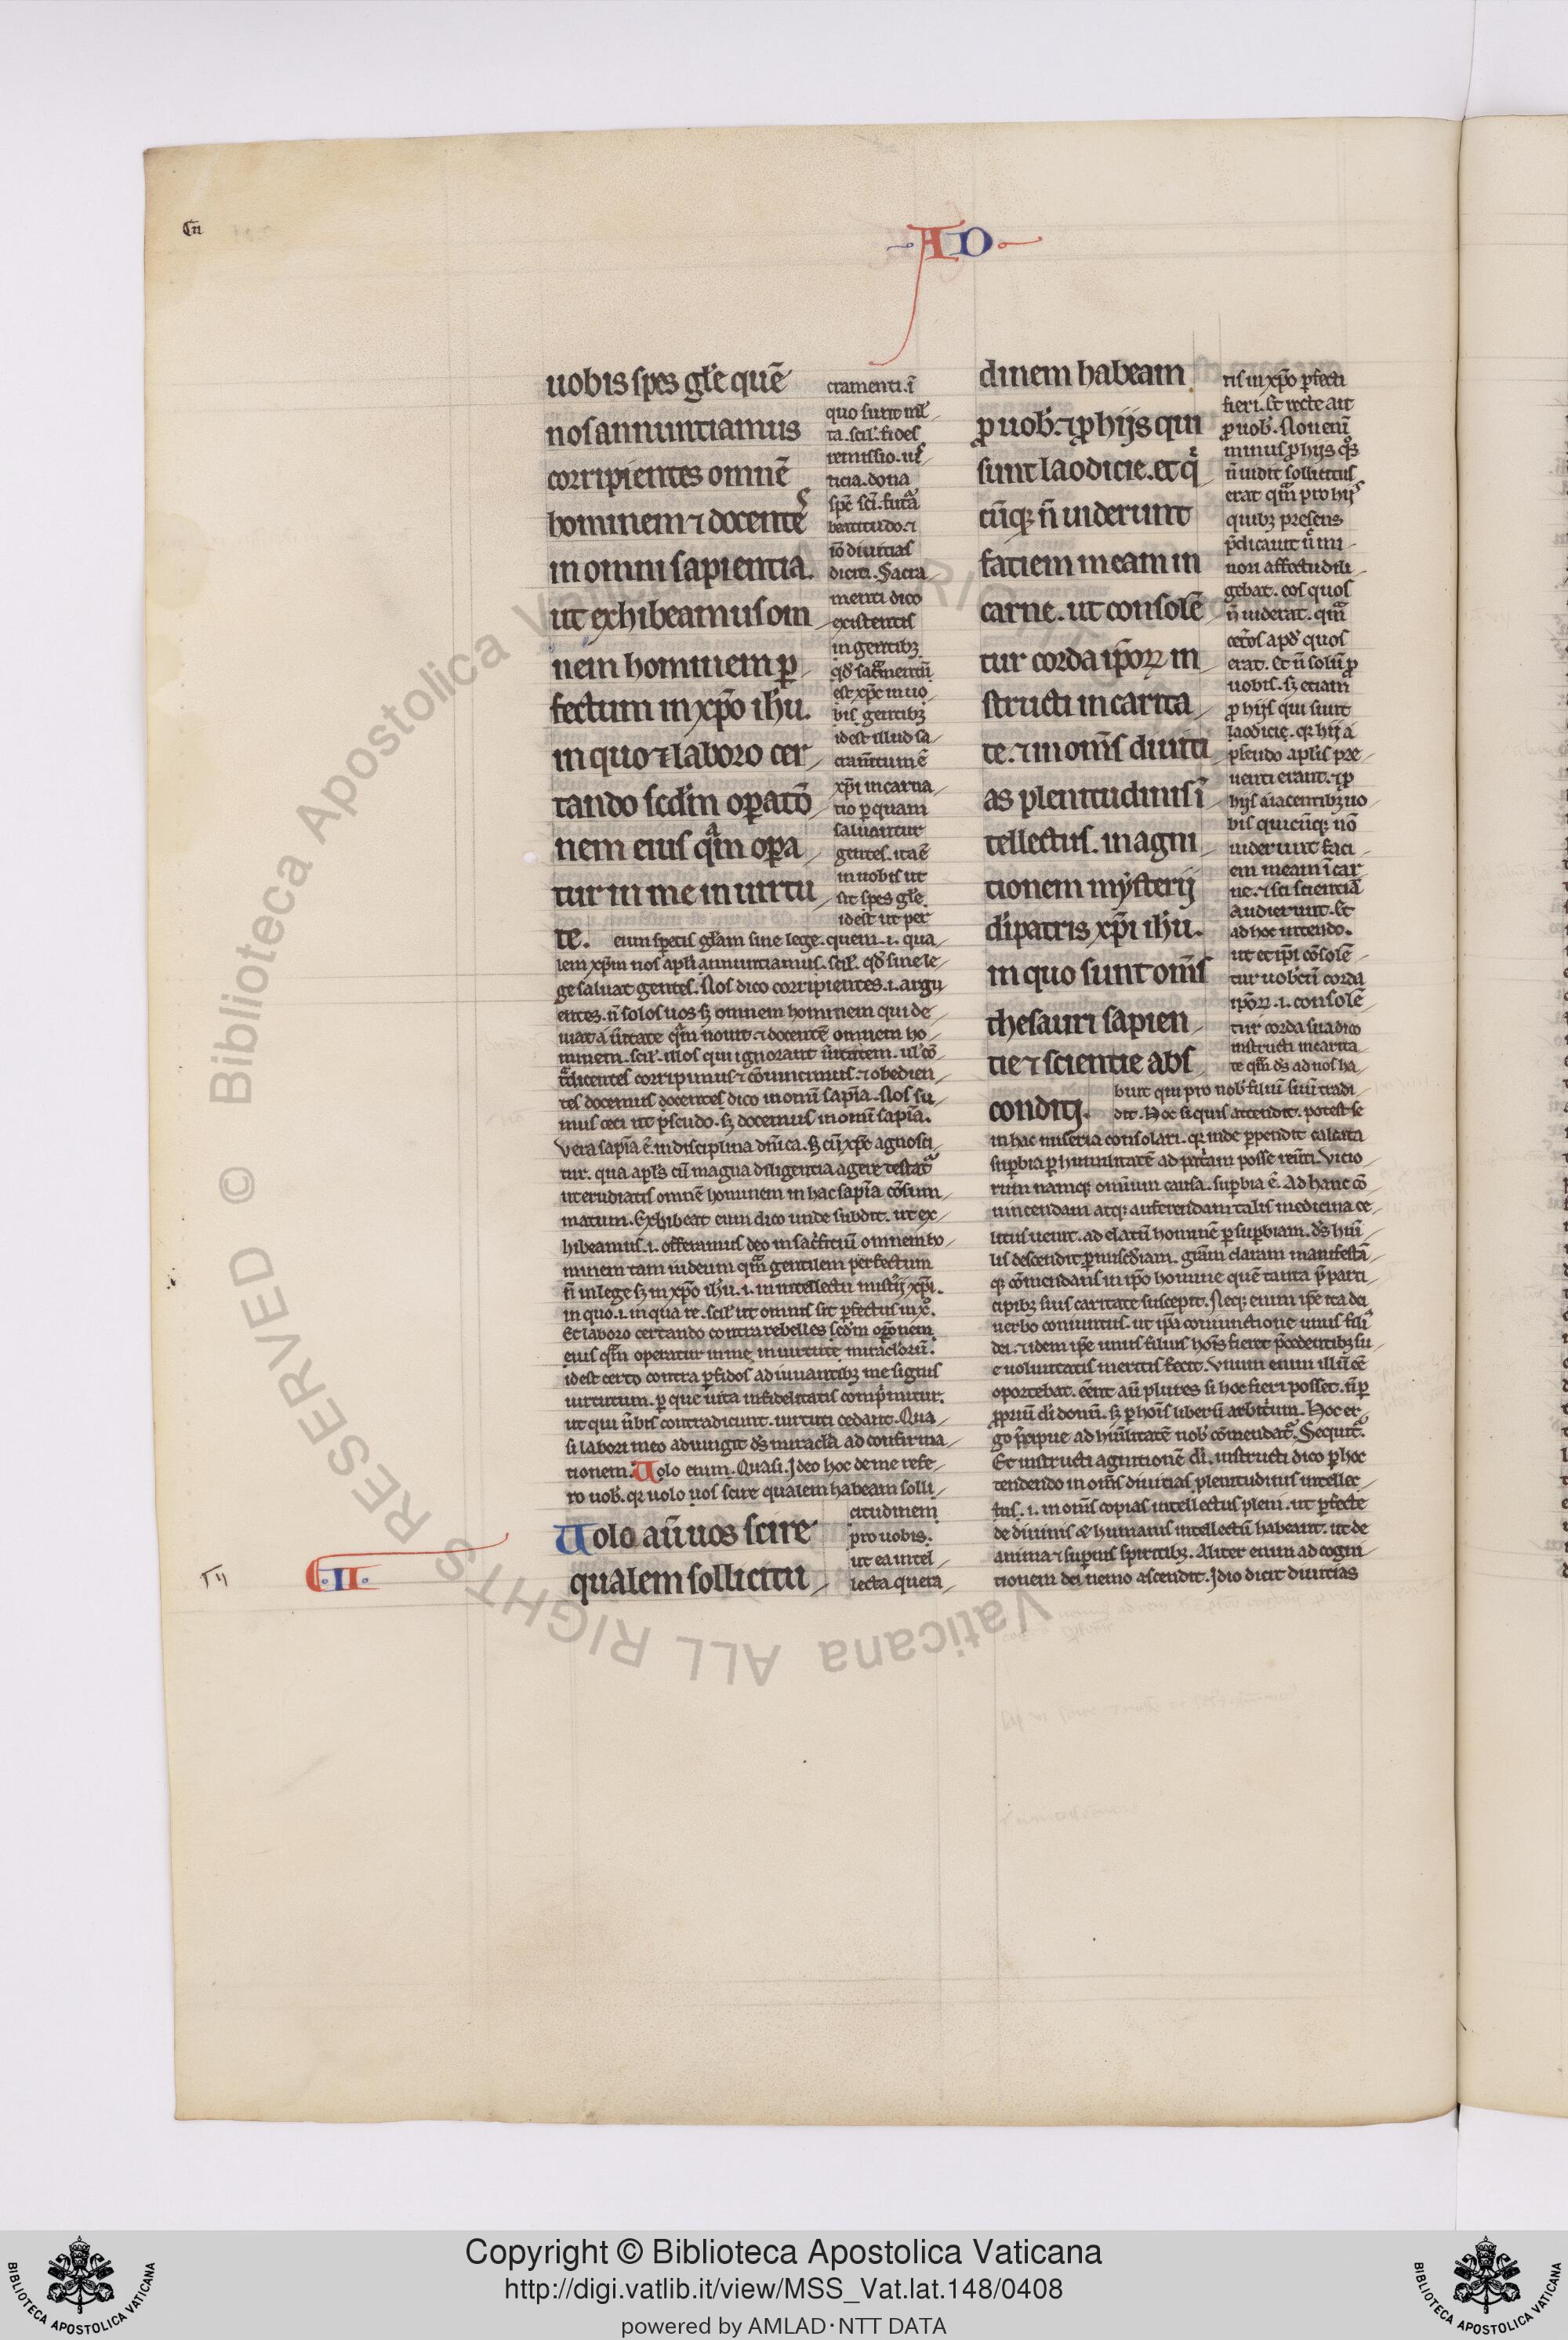 AD
uobis spes gl'e quē
nos annuntiamus
corripientes omnē
hominem ⁊ docentes
in omni sapientia.
ut exhibeamus om
nem hominem ꝑ
fectum in xp̄o ih'u.
in quo ⁊ laboro cer
tando scd'm oꝑatō
nem eius qᵃm oꝑa
tur in me in uirtu
te.
ctamenti. ī
quo sunt ml'
ta. scil'. fides
remissio. ius
ticia. dona
spc̄ sc̄i. futᵃ
beatitudo. ⁊
iō diuitias
dicit. Sacra
menti dico
existentis
in gentibꝫ
qd' sacᵃmentū
est xp̄c in uo
bis gentibꝫ
id est illud sa
cramtum ē
xp̄i incarna
tio ꝑ quam
saluantur
gentes. ita ē
in uobis ut
sit spes gl'e.
id est ut per
eum sꝑetis gl'am sine lege. quem .i. qua
lem xp̄m nos apl'i annuntiamus. scil'. qd' sine le
ge saluat gentes. Nos dico corripientes .i. argu
entes. n̄ solos uos sꝫ omnem hominem qui de
uiat a ūitate qᵃm nouit. ⁊ docentē omnem ho
minem. scil'. illos qui ignorant ūitatem. ul' cō
tᵃdicentes corripimus ⁊ cōuincimus. ⁊ obedien
tes docemus docentes dico in omī sapīa. Nos su
mus ceci ut pseudo. sꝫ docemus in omī sapīa.
Vera sapīa ē. in disciplina dn̄ica. Sꝫ cū xp̄c agnosci
tur. qua apl's cū magna diligentia agere testat'
ut erudiatis omnē hominem in hac sapīa cōsum
matum. Exhibeat eum dico unde subdit. ut ex
hibeamus .i. offeramus deo in sac'ficiū omnem ho
minem tam iudeum qᵃm gentilem perfectum
n̄ in lege sꝫ in xp̄o ih'u .i. in intellectu misterij xp̄i.
in quo .i. in qua re. scil' ut omnis sit ꝑfectus in x̄o.
Et laboro certando contra rebelles scd'm oꝑonem
eius qᵃm operatur in me in uirtute miraclorū.
id est certo contra ꝑfidos adiuuantibꝫ me signis
uirtutum. ꝑ que uita infidelitatis comp'mitur.
ut qui ūbis contradicunt. uirtuti cedant. Qua
si labori meo adiungit ds miracl'a ad confirma
tionem. Uolo enim. Quasi. Ideo hoc de me refe
ro uob'. qꝛ uolo uos scire qualem habeam solli
citudinem
pro uobis.
ut ea intel
lecta quera
Uolo aū uos scire
qualem sollicitu
.II.
dinem habeam
ꝓ uob'. ⁊ ꝓ hijs qui
sunt laodicie. et q̇
cūqꝫ n̄ uiderunt
faciem meam in
carne. ut consolē
tur corda ip̄oꝝ in
structi in carita
te. ⁊ in om̄s diuiti
as plenitudinis ī
tellectus. in agni
tionem mẏsterij
di patris xp̄i ih'u.
in quo sunt om̄s
thesauri sapien
tie ⁊ scientie abs
conditj.
tis in xp̄o ꝑfecti
fieri. Et recte ait
ꝓ uob'. Non enī
minus ꝓ hijs qᵒs
n̄ uidit sollicitus
erat qᵃm pro hijs
quibꝫ presens
p̄dicauit ū mi
nori affectu dili
gebat. eos quos
n̄ uiderat. qᵃm
cet'os apd' quos
erat. Et n̄ solū ꝓ
uobis. sꝫ etiam
ꝓ hijs qui sunt
laodicię. qꝛ hij a
pseudo apl'is pre
uenti erant. ⁊ ꝓ
hijs aiacentibꝫ uo
bis quicūqꝫ nō
uiderunt faci
em meam ī car
ne. ⁊ si scientiā
audierunt. Et
ad hoc intendo.
ut et ip̄i cōsolē
tur uobcū corda
ipoꝝ .i. consolē
tur corda sua dico
instructi in carita
te qᵃm ds ad nos ha
buit qui pro nob' filiū suū tradi
dit. Hoc si quis attendit. potest se
in hac miseria consolari. qꝛ inde ꝑpendit calcata
suꝑbia ꝑ humilitatē ad pat'am posse reūti. Vicio
rum namqꝫ omnium causa. suꝑbia ē. Ad hanc cō
uincendam atqꝫ auferendam talis medicina ce
litus uenit. ad elatū hominē ꝑ suꝑbiam. ds hūi
lis descendit. ꝑ mis'cd'iam. grām claram manifestā
qꝫ cōmendans in ip̄o homine quē tanta p̄ parti
cipibꝫ suis caritate suscepit. Neqꝫ enim ip̄e ita dei
uerbo coniunctus. ut ip̄a coniunctione unus fili'
dei. ⁊ idem ip̄e unus filius hoīs fieret p̄cedentibꝫ su
e uoluntatis meritis fecit. Vnum enim illū eē
oportebat. eēnt aū plures si hoc fieri posset. n̄ ꝑ
ꝓpriū di donū. sꝫ ꝑ hoīs liberū arbitrium. Hoc er
go p̄cipue ad hūilitatē nob' cōmendat'. Sequit'.
Et instructi agnitionē di. instructi dico ꝑ hoc
tendendo in om̄s diuitias plenitudinis intellec
tus .i. in om̄s copias intellectus pleni. ut ꝑfecte
de diuinis & humanis intellectū habeant. ut de
anima ⁊ suꝑnis spiritibꝫ. Aliter enim ad cogni
tionem dei nemo ascendit. Idio dicit diuitias
Biblioteca Apostolica Vaticana ALL RIGHTS RESERVED ©
Copyright © Biblioteca Apostolica Vaticana
http://digi.vatlib.it/view/MSS_Vat.lat.148/0408
powered by AMLAD·NTT DATA
BIBLIOTECA APOSTOLICA VATICANA
BIBLIOTECA APOSTOLICA VATICANA